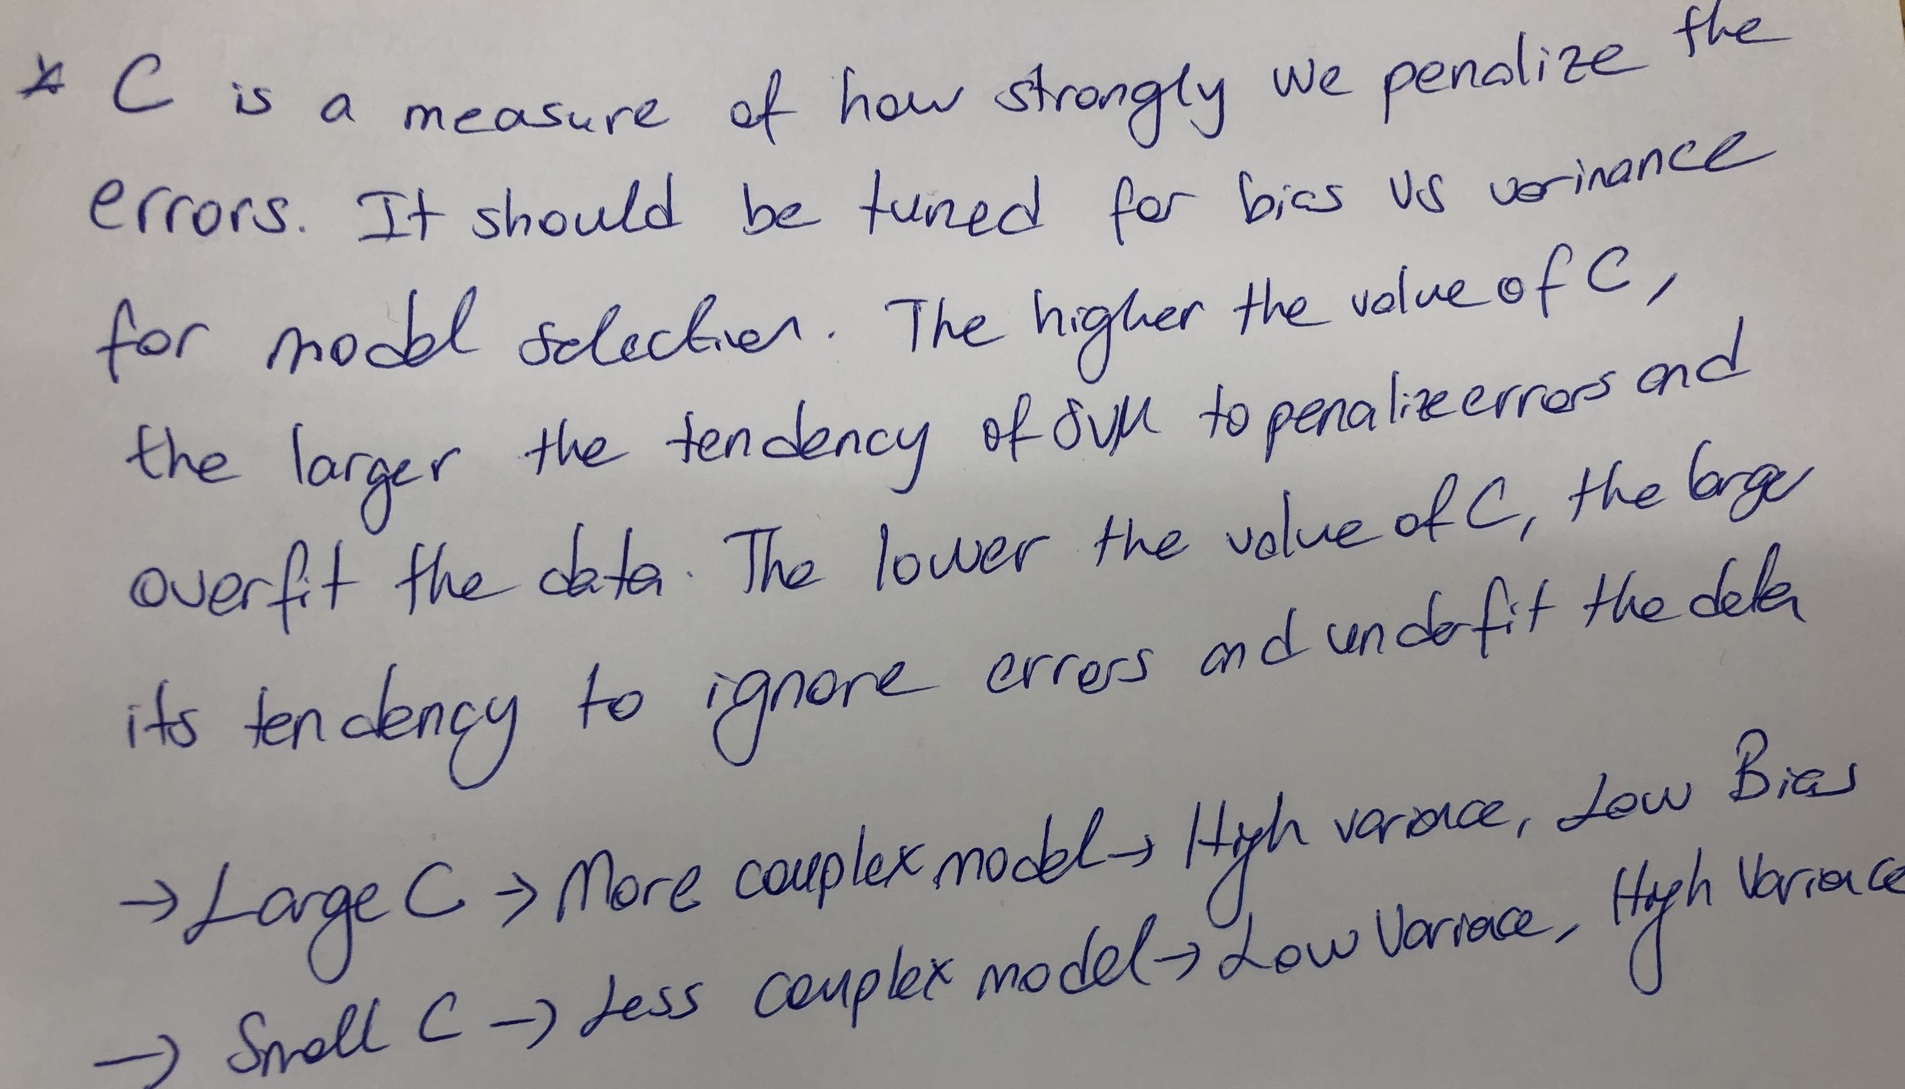 * C is a measure of how strongly we penalize the
errors. It should be tuned for bias vs varinance
for model selection. The higher the value of C,
the larger the tendency of SVM to penalize errors and
overfit the data. The lower the value of C, the large
its tendency to ignore errors and underfit the data
→ Large C → More complex model → High variace, Low Bias
→ Small C → Less complex model → Low Variace, High Variace